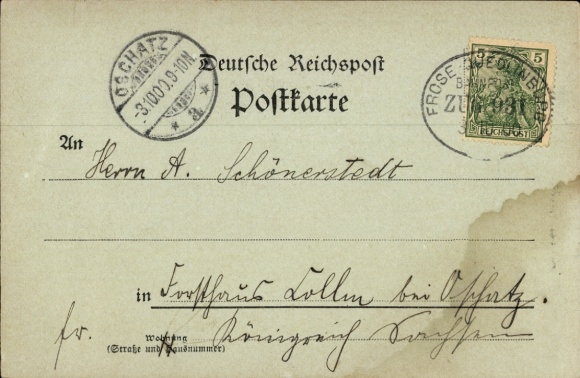 OSCHATZ
-3.10.00.9-10N.
* a *
Deutsche Reichspost
Postkarte
5 5
REICHSPOST
FROSE-QUEDLINBURG
BAHNPOST
ZUG 931
3 10 00
An
Herrn A. Schönerstedt
in Forsthaus Collm bei Oschatz.
fr. Königreich Sachsen
Wohnung
(Straße und Hausnummer)